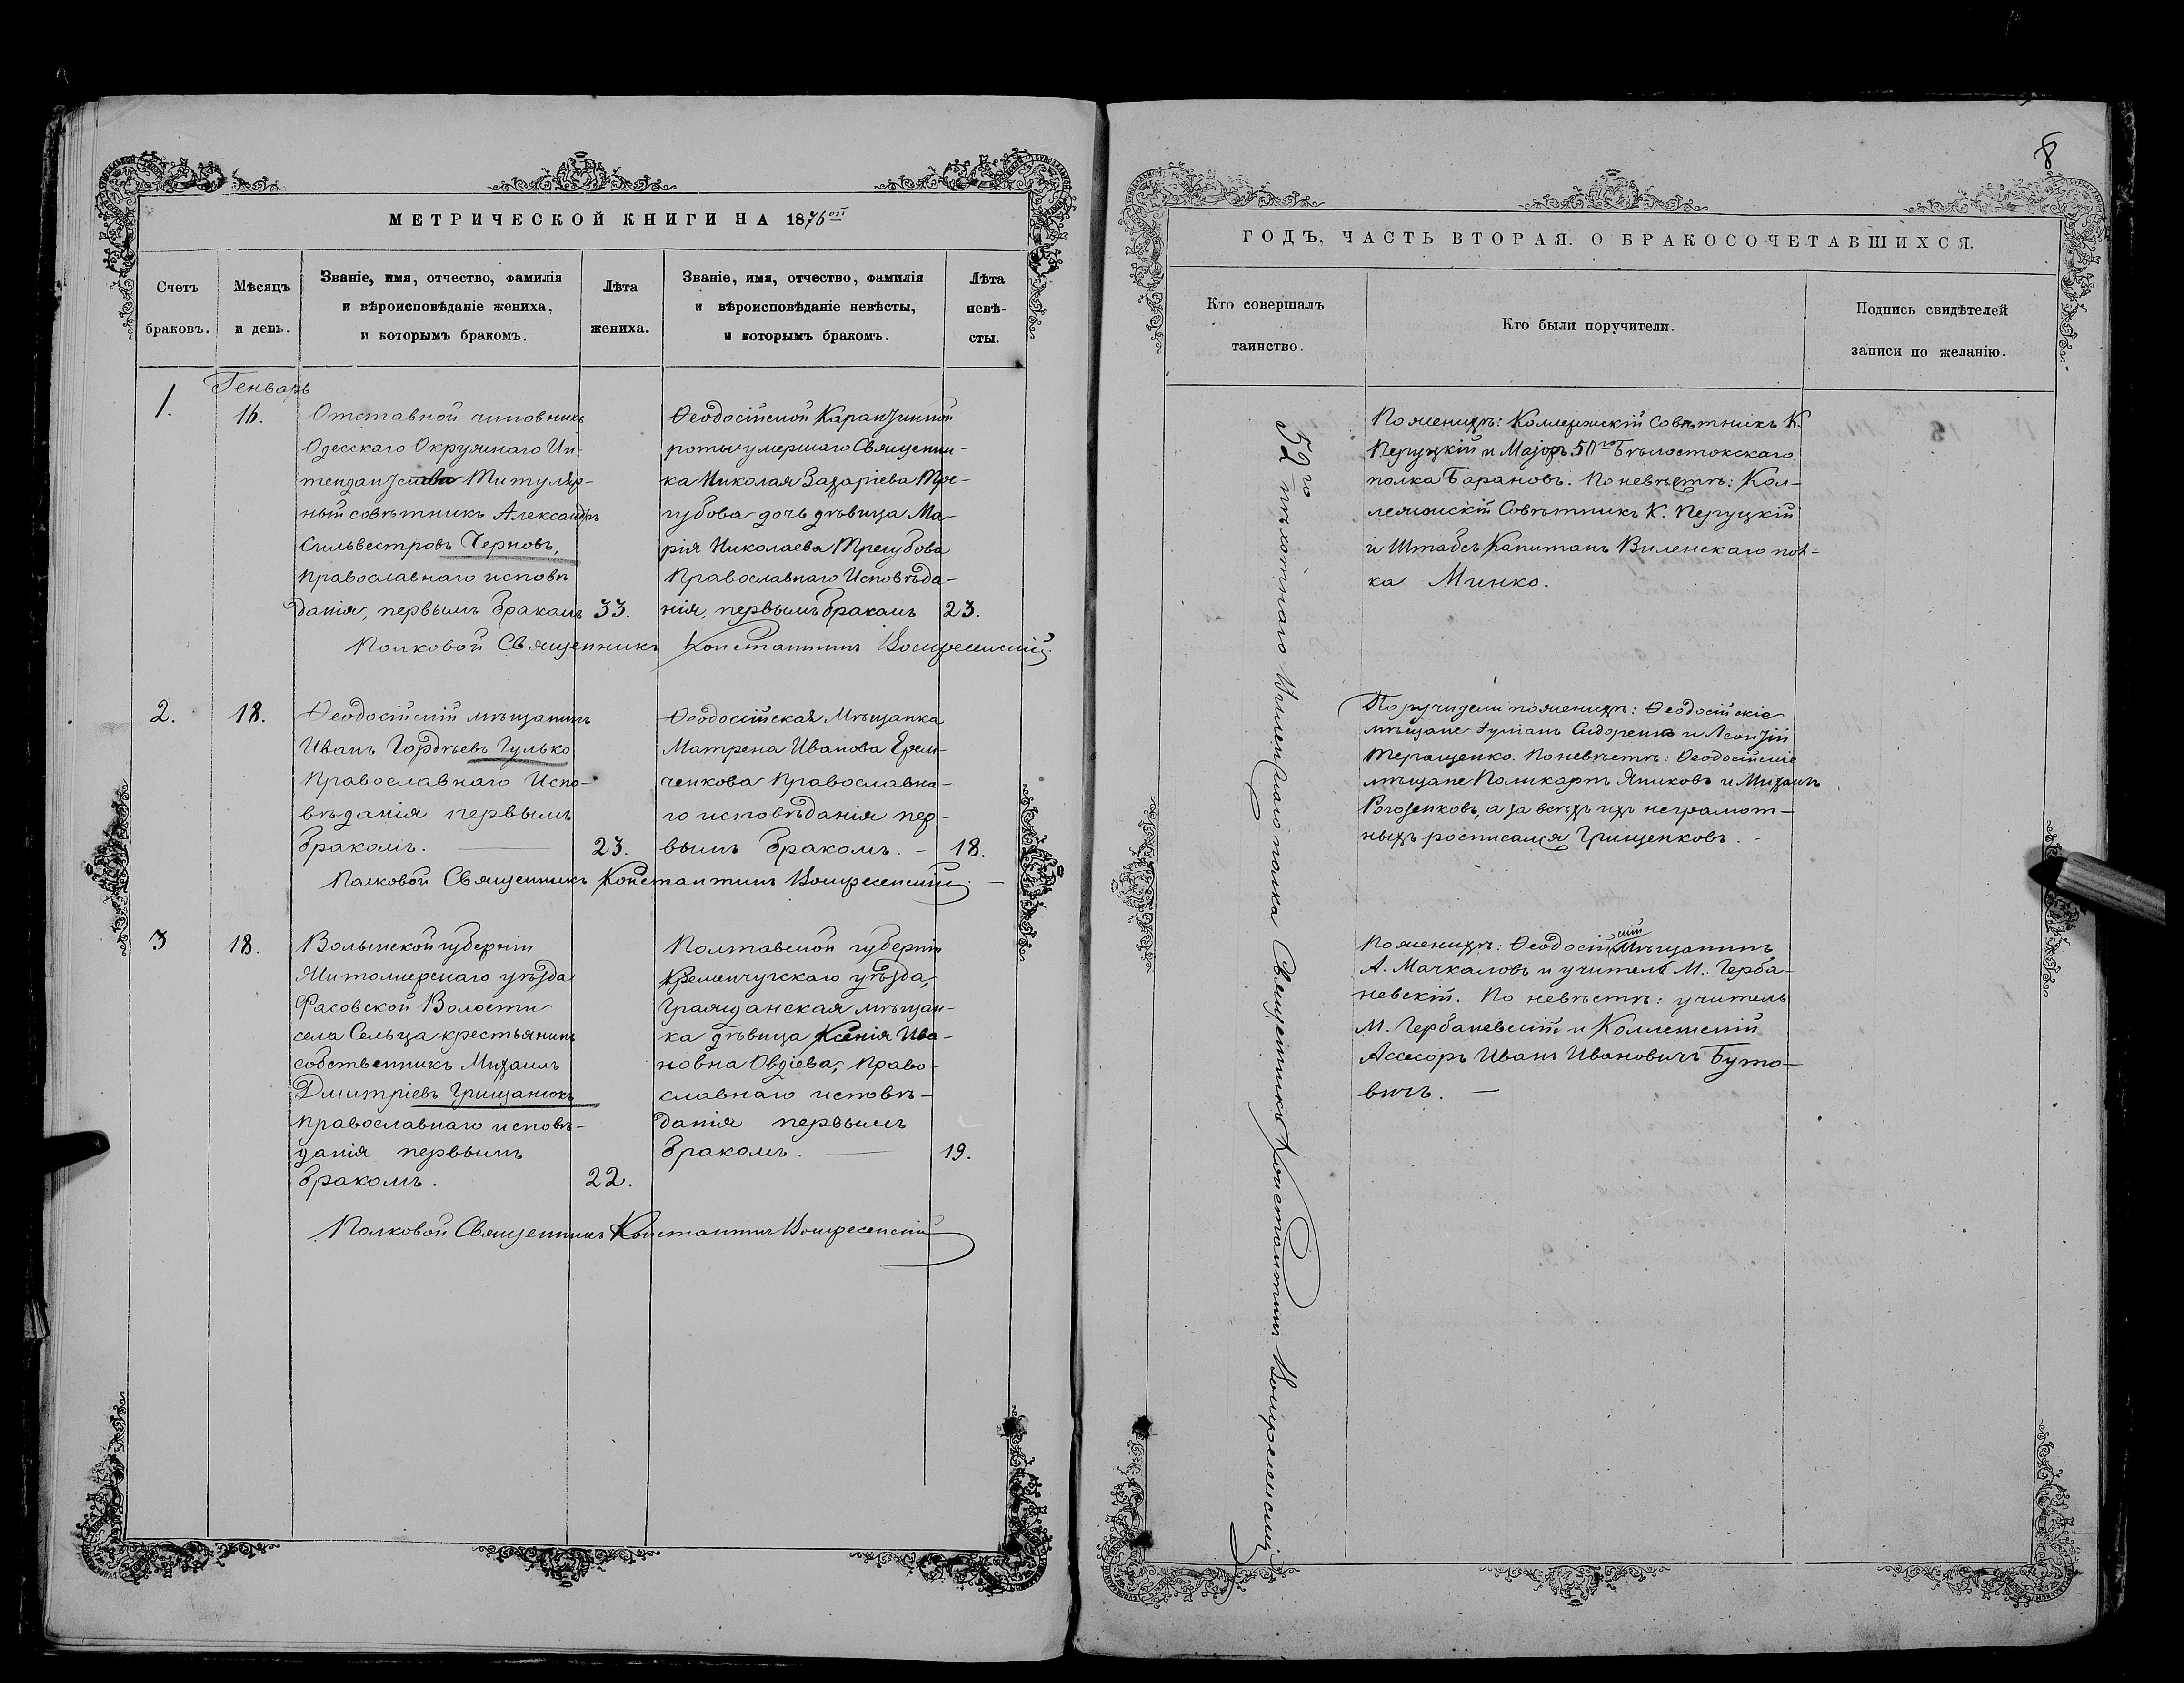 МЕТРИЧЕСКОЙ КНИГИ НА 1876ой
Счетъ
браковъ.
Мѣсяцъ
и день.
Званіе, имя, отчество, фамилія
и вѣроисповѣданіе жениха,
и которымъ бракомъ.
Лѣта
жениха.
Званіе, имя, отчество, фамилія
и вѣроисповѣданіе невѣсты,
и которымъ бракомъ.
Лѣта
невѣ-
сты.
1.
Генварь
16.
Отставной чиновникъ
Одесскаго Окружнаго Ин-
тендантства Титуляр-
ный совѣтникъ Александръ
Сильвестровъ Черновъ,
православнаго исповѣ
данія, первымъ бракомъ
33.
Ѳеодосійской Карантинной
роты умершаго Священни-
ка Николая Захаріева Тре-
губова дочь дѣвица Ма-
рія Николаева Трегубова
Православнаго Исповѣда-
нія, первымъ бракомъ
23.
Полковой Священникъ Константинъ Воскресенскій
2.
18.
Ѳеодосійскій мѣщанинъ
Иванъ Гордѣевъ Гулько
Православнаго Испо-
вѣданія первымъ
бракомъ.
23.
Ѳеодоссійская Мѣщанка
Матрена Иванова
ченкова Православна-
го исповѣданія пер-
вымъ бракомъ. -
18.
Полковой Священникъ Константинъ Воскресенскій
3
18.
Волынской губерніи
Житомирскаго уѣзда
Фасовской Волости
села Сельца крестьянинъ
собственникъ Михаилъ
Дмитріевъ Грищанюкъ
православнаго исповѣ-
данія первымъ
бракомъ.
22.
Полтавской губерніи
Кременчугскаго уѣзда,
Гражданская мѣщан-
ка дѣвица Ксенія Ива-
новна Овдіева, Право-
славнаго исповѣ-
данія первымъ
бракомъ.
19.
Полковой Священникъ Константинъ Воскресенскій
8
ГОДЪ. ЧАСТЬ ВТОРАЯ. О БРАКОСОЧЕТАВШИХСЯ.
Кто совершалъ
таинство.
Кто были поручители.
Подпись свидѣтелей
записи по желанію.
52го пѣхотнаго Виленскаго полка Священникъ Константинъ Воскресенскій
По женихѣ: Коллежскій Совѣтникъ К.
Перуцкій и Маjоръ 50го Бѣлостокскаго
полка Барановъ. По невѣстѣ: Кол-
лежскій Совѣтникъ К. Перуцкій
и Штабсъ Капитанъ Виленскаго пол-
ка Минко.
Поручители по женихѣ: Ѳеодосійскіе
мѣщане Сидоренко и Леонтій
Терещенко. По невѣстѣ: Ѳеодосійскіе
мѣщане Поликарпъ Яниковъ и Михаилъ
Рогозенковъ, а за всѣхъ ихъ неграмот-
ныхъ росписался Грищенковъ.
По женихѣ: Ѳеодосійскій Мѣщанинъ
А. Мачкаловъ и учитель М. Герба-
невскій. По невѣстѣ: учитель
М. Гербаневскій и Коллежскій
Асесоръ Иванъ Ивановичъ Буто-
вичъ. —